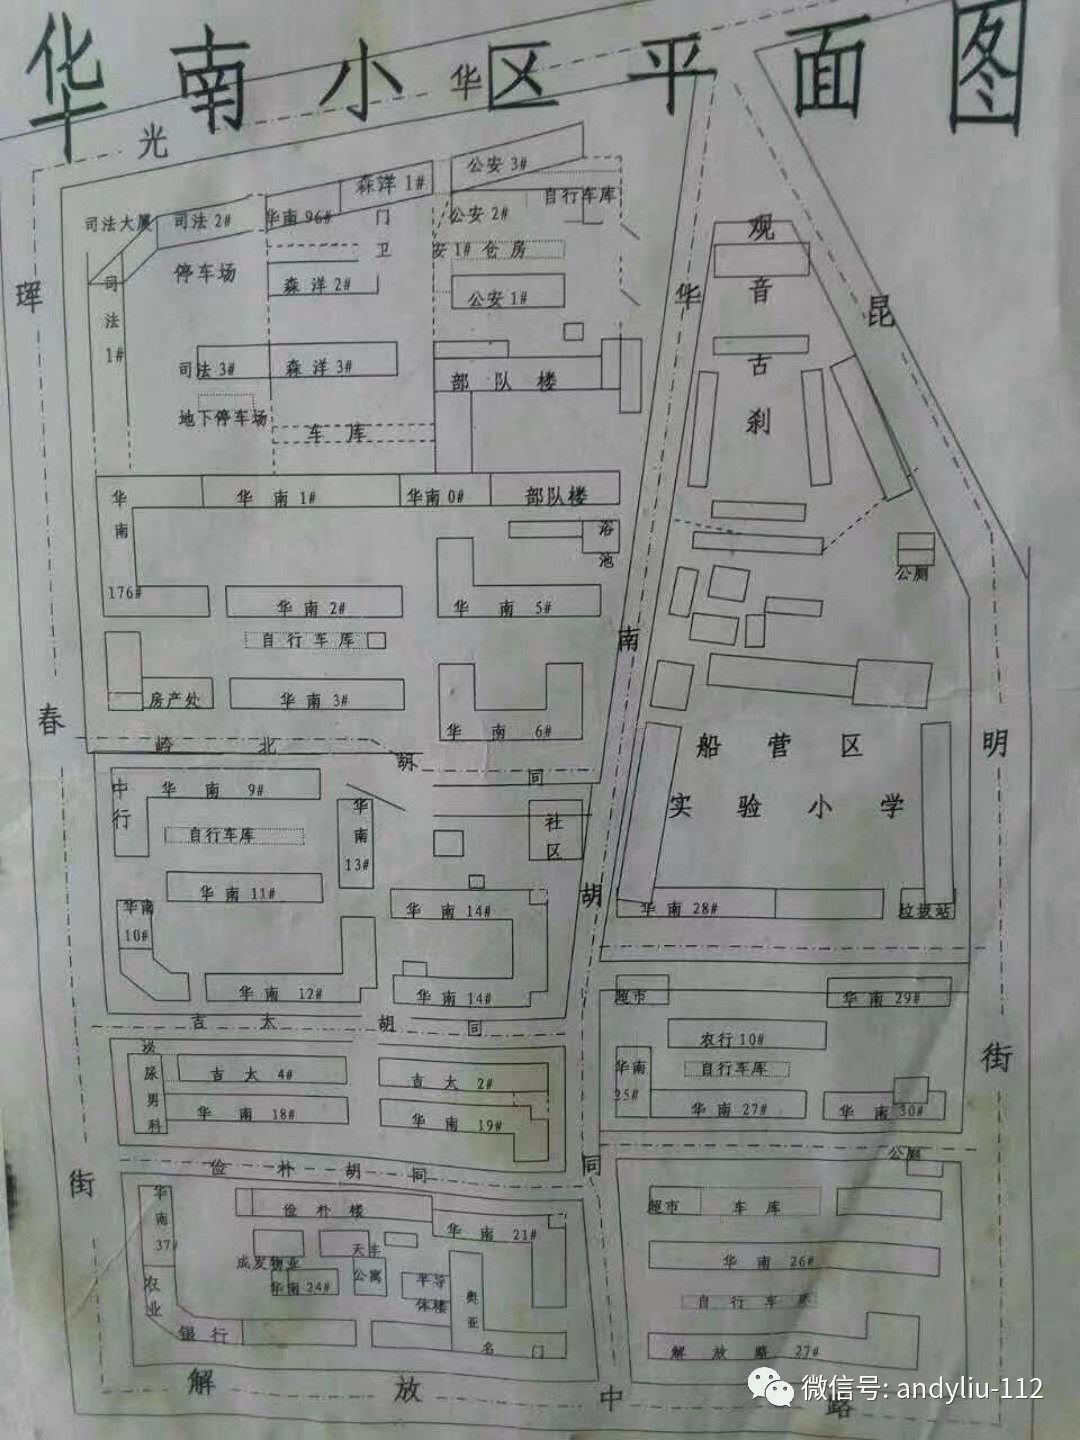 华南小区平面图
光华
珲春街
昆明街
华南胡同
解放中路
司法大厦
司法 2#
华南 96#
森洋 1#
公安 3#
自行车库
公安 2#
门卫
安1# 仓房
停车场
司法 1#
森洋 2#
公安 1#
司法 3#
森洋 3#
部队楼
地下停车场
车库
华南 176#
华南 1#
华南 0#
部队楼
浴池
华南 2#
华南 5#
自行车库
房产处
华南 3#
华南 6#
观音古刹
公厕
船营区
实验小学
岭北胡同
中行
华南 9#
自行车库
华南 13#
社区
华南 11#
华南 10#
华南 14#
华南 12#
华南 14#
华南 28#
垃圾站
吉太胡同
超市
华南 29#
农行 10#
自行车库
华南 27#
华南 30#
泌尿男科
吉太 4#
吉太 2#
华南 18#
华南 19#
俭朴胡同
公厕
华南 37#
农业
银行
俭朴楼
华南 21#
成发物业
华南 24#
公寓
半导体楼
奥亚名门
超市
车库
华南 26#
自行车库
解放路 27#
微信号: andyliu-112